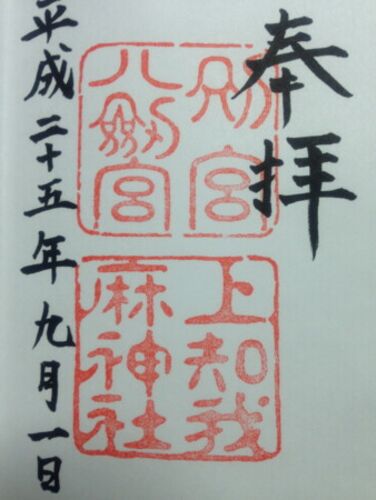 奉拝
別宮
八剱宮
上知我
麻神社
平成二十五年九月一日